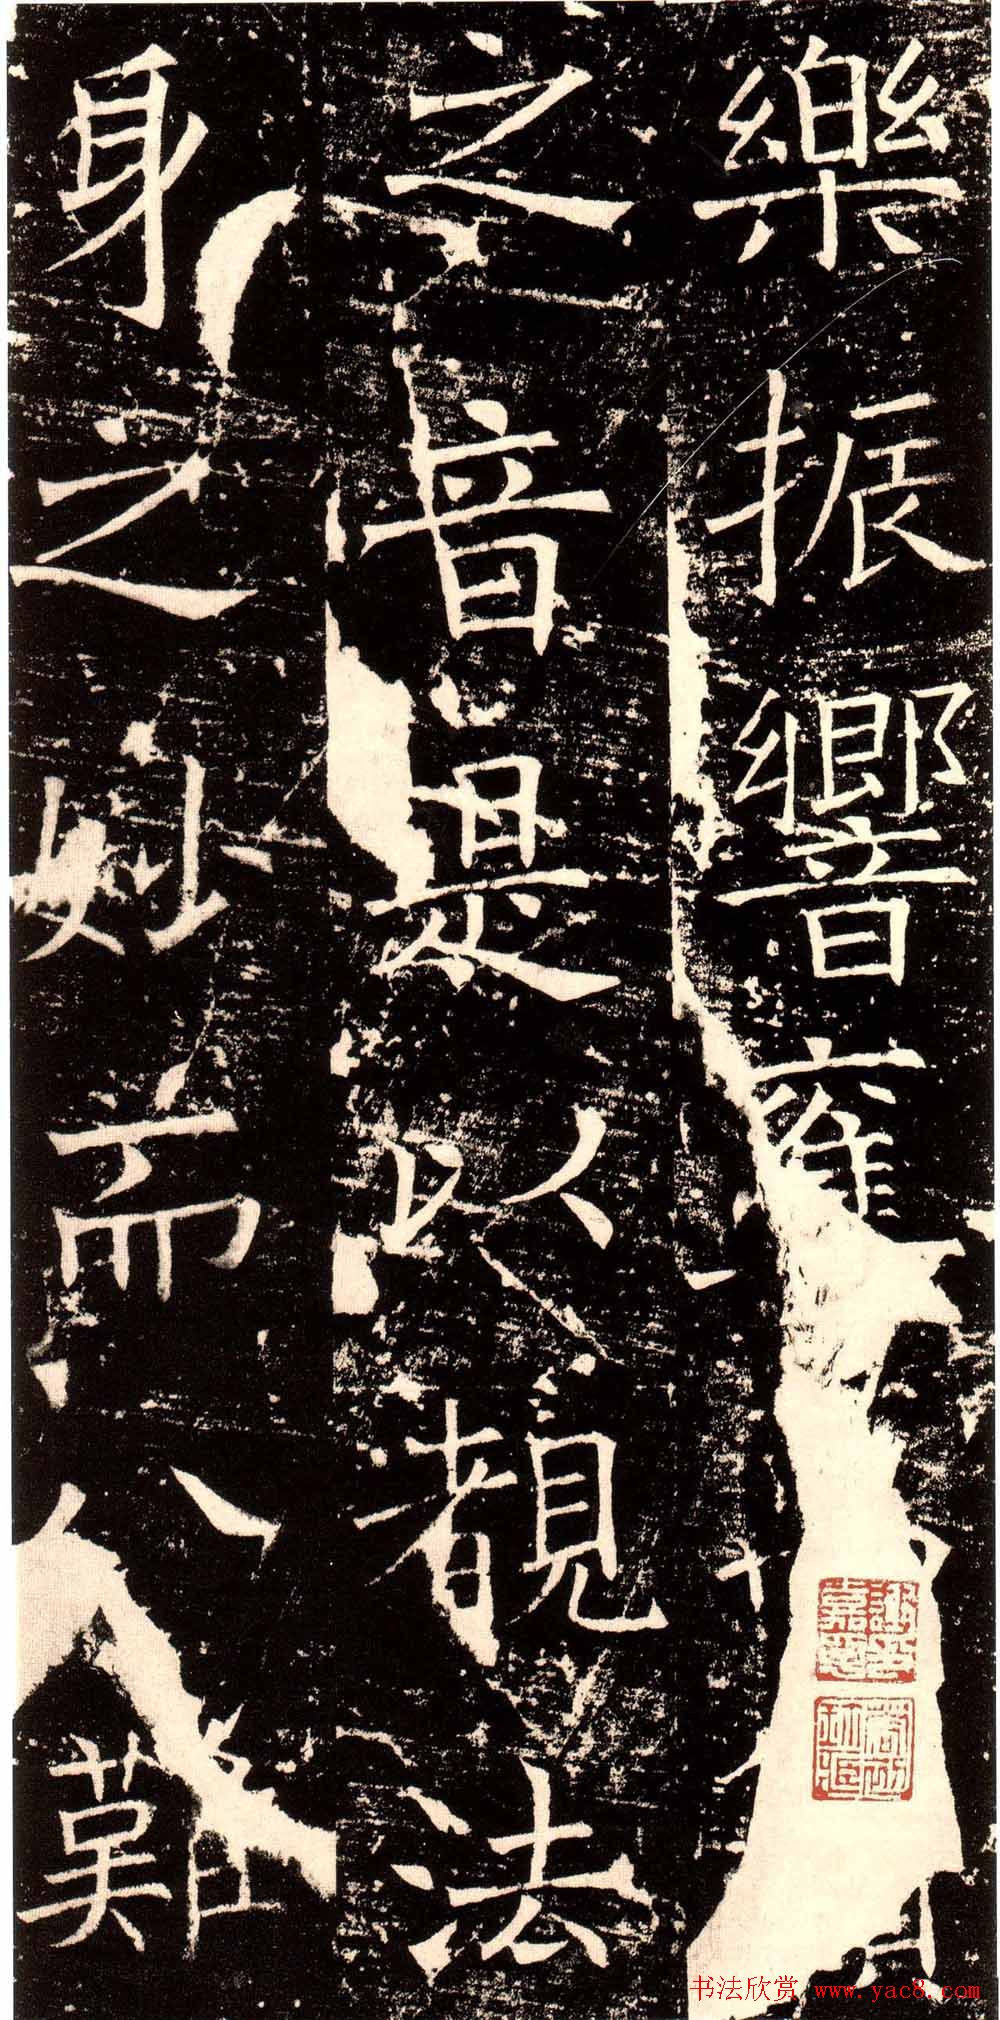 樂振響雍
之音是以覩法
身之妙而八難
书法欣赏 www.yac8.com